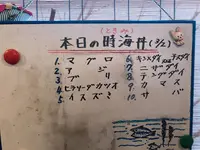 (ときめき)
本日の時海丼(3/2)
1. マグロ
2. アジ
3. ブリ
4. ヒラソーダカツオ
5. イスズミ
6. キンメダイ
7. ニザダイ
8. テングダイ
9. カマス
10. サバ